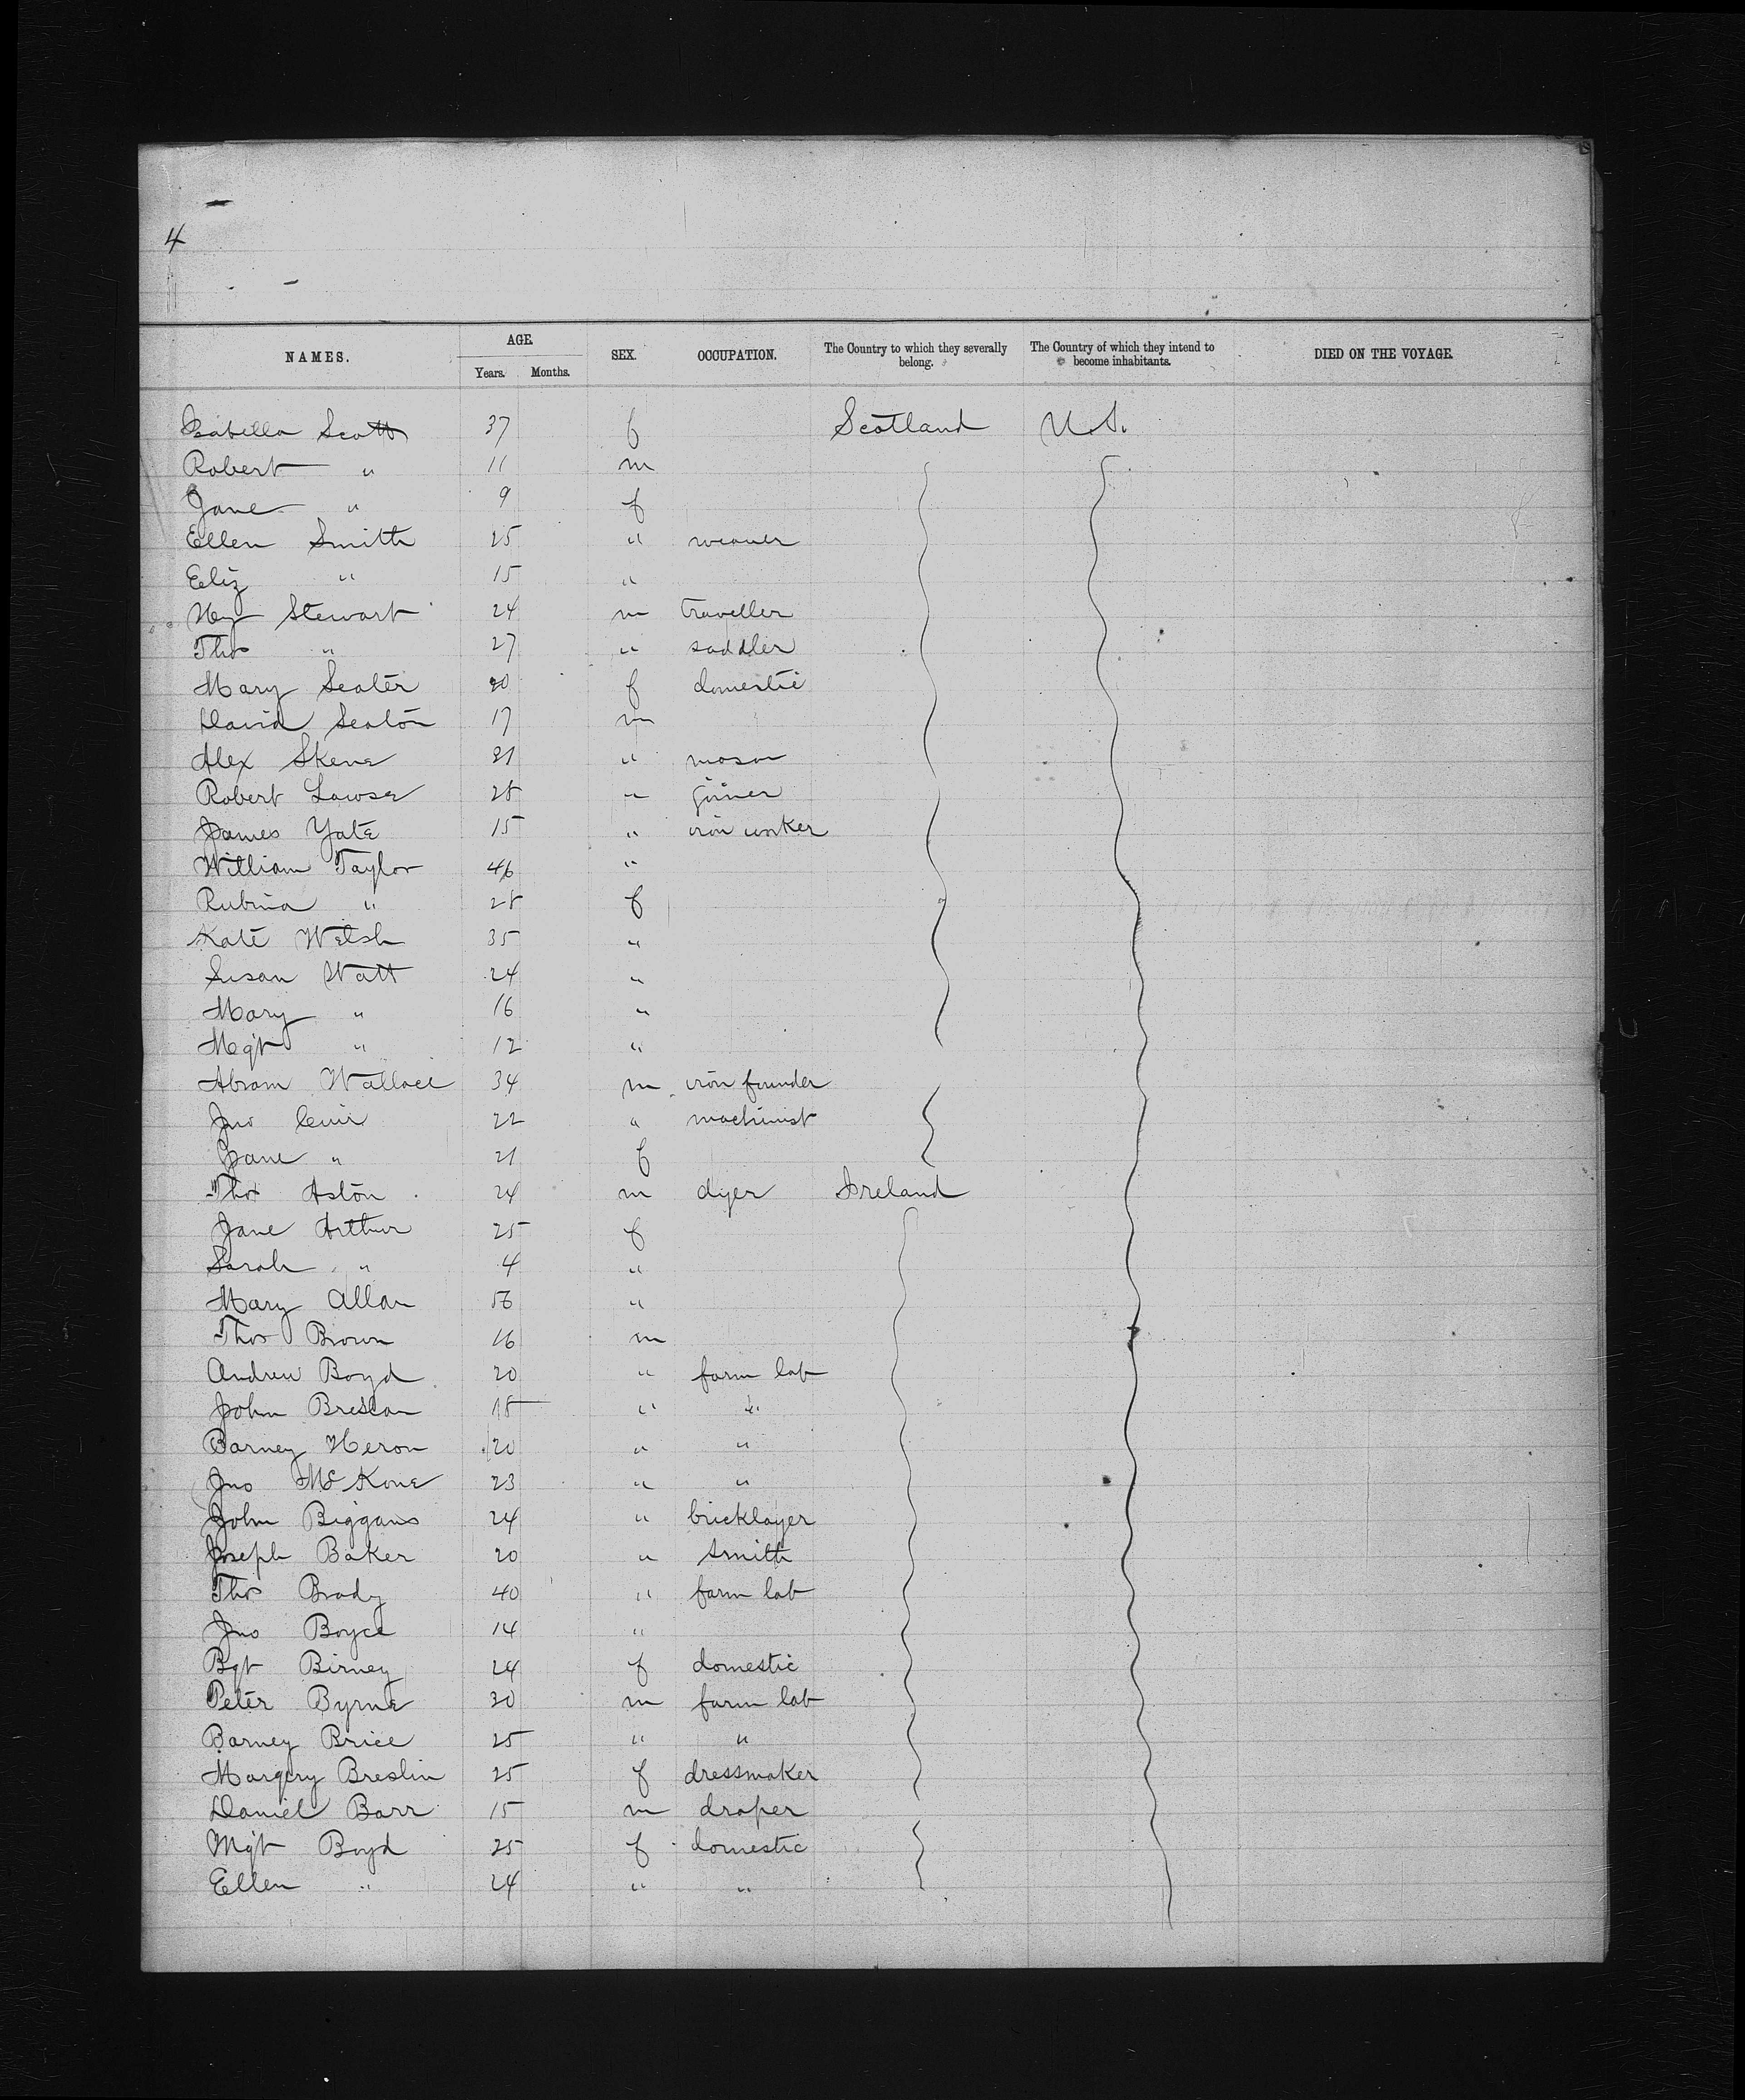 4
NAMES. AGE. SEX. OCCUPATION. The Country to which they severally belong. The Country of which they intend to become inhabitants. DIED ON THE VOYAGE.
Years. Months.
Isabella Scott 37 f Scotland U.S.
Robert " 11 m
Jane " 9 f
Ellen Smith 25 " weaver
Eliz " 15 "
Hy Stewart 24 m traveller
Thos " 27 " saddler
Mary Seater 20 f domestic
David Seaton 17 m
Alex Skene 21 " mason
Robert Lawse 28 " joiner
James Yate 15 " iron worker
William Taylor 46 "
Rubina " 28 f
Kate Welsh 35 "
Susan Watt 24 "
Mary " 16 "
Mgt " 12 "
Abram Wallace 34 m iron founder
Jno 22 " machinist
Jane " 21 f
Thos Aston 24 m dyer Ireland
Jane Arthur 25 f
Sarah " 4 "
Mary Allan 56 "
Thos Brown 16 m
Andrew Boyd 20 " farm lab
John Breslan 18 " "
Barney Heron 20 " "
Jno McKone 23 " "
John Biggans 24 " bricklayer
Joseph Baker 20 " smith
Thos Brady 40 " farm lab
Jno Boyce 14 "
Bgt Birney 24 f domestic
Peter Byrne 30 m farm lab
Barney Brice 25 " "
Margery Breslin 25 f dressmaker
Daniel Barr 15 m draper
Mgt Boyd 25 f domestic
Ellen " 24 " "